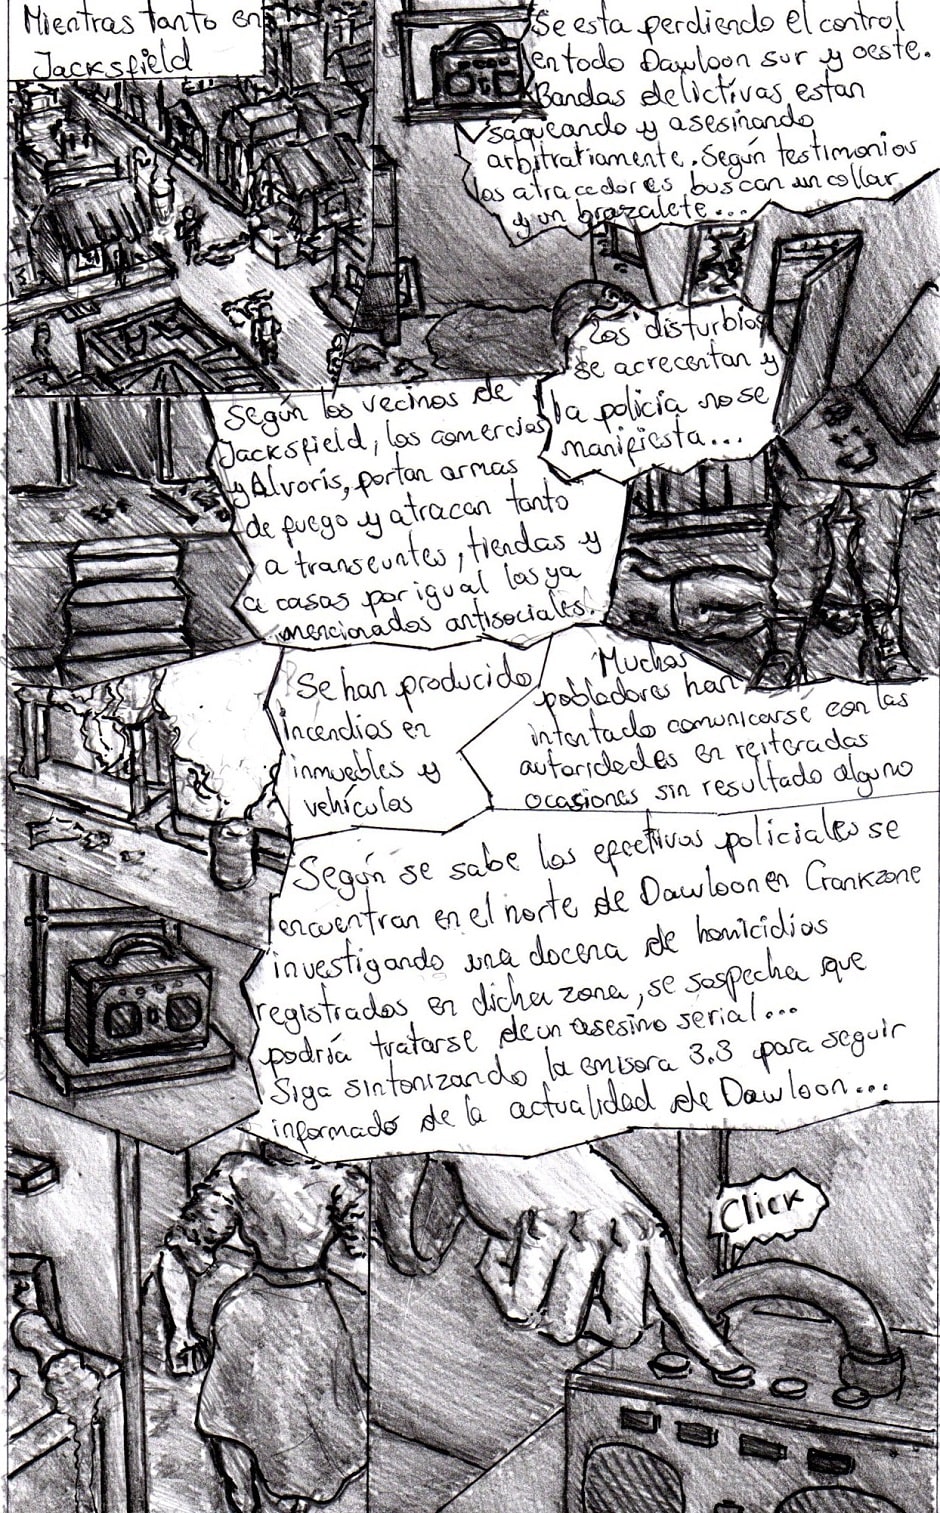 Mientras tanto en
Jacksfield
Se esta perdiendo el control
en todo Dawloon sur y oeste.
Bandas delictivas estan
saqueando y asesinando
arbitrariamente. Según testimonios
los atracedores buscan un collar
y un brazalete...
Los disturbios
se acrecentan y
la policía no se
manifiesta...
Según los vecinos de
Jacksfield, los comercios
y Alvoris, portan armas
de fuego y atracan tanto
a transeuntes, tiendas y
a casas por igual los ya
mencionados antisociales.
Se han producido
incendios en
inmuebles y
vehículos
Muchos
pobladores han
intentado comunicarse con las
autoridedes en reiteradas
ocasiones sin resultado alguno
Según se sabe los efectivos policiales se
encuentran en el norte de Dawloon en Crankzone
investigando una docena de homicidios
registrados en dicha zona, se sospecha que
podría tratarse de un asesino serial...
Siga sintonizando la emisora 3.3 para seguir
informado de la actualidad de Dawloon...
Click